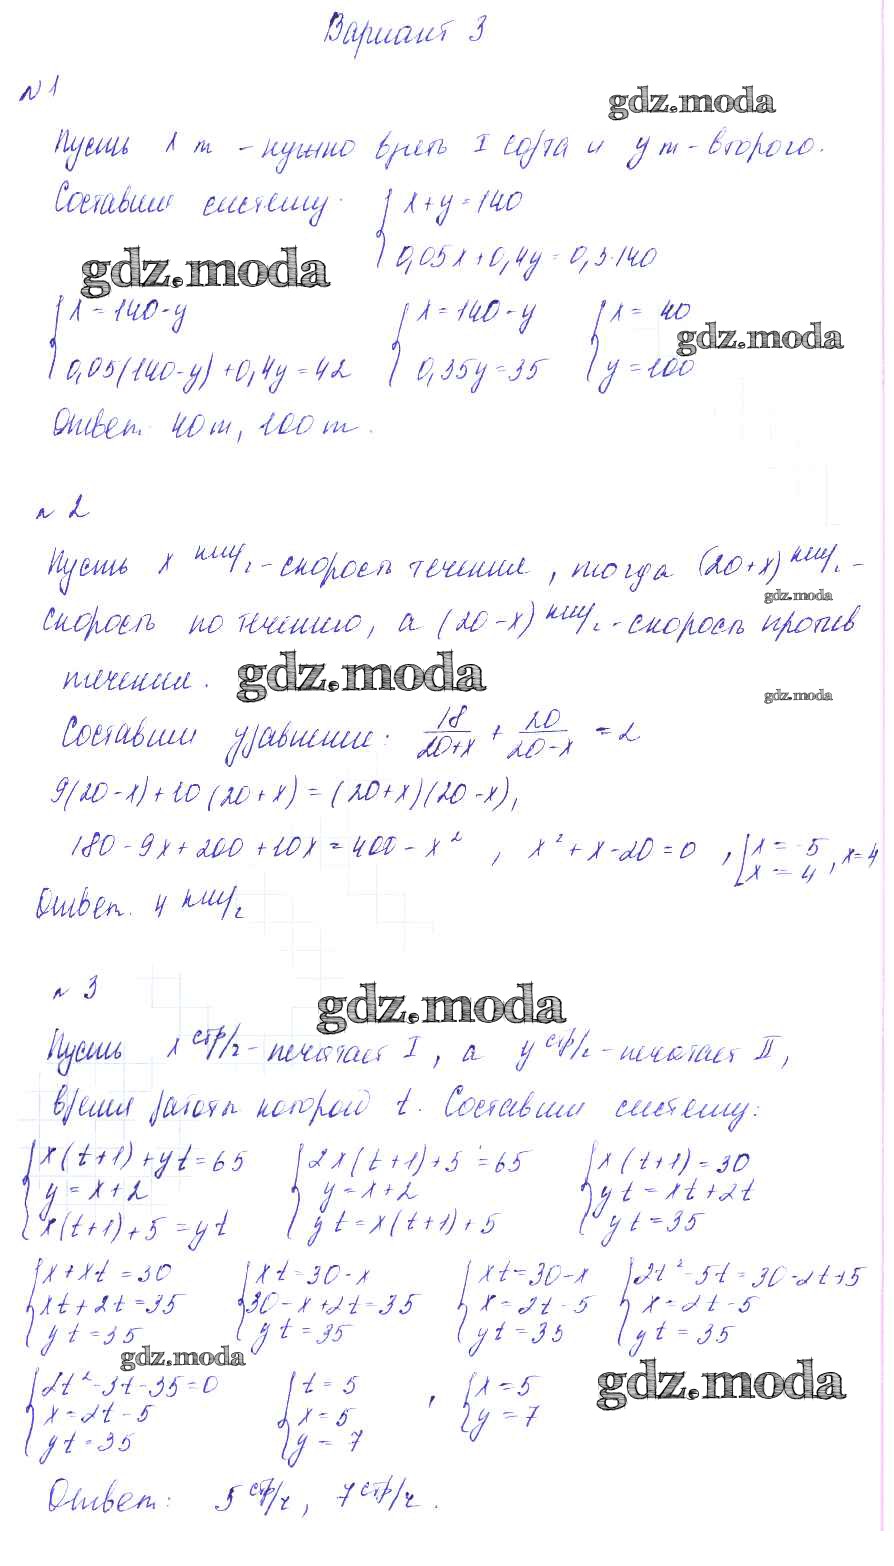 Вариант 3
№1
gdz.moda
Пусть x т - нужно взять I сорта и y т - второго.
Составим систему: { x+y=140
0,05x+0,4y=0,3·140
gdz.moda
{ x=140-y { x=140-y { x= 40
gdz.moda
0,05(140-y)+0,4y=42 0,35y=35 y=100
Ответ: 40т, 100т.
№ 2
Пусть x км/ч - скорость течения, тогда (20+x) км/ч -
gdz.moda
скорость по течению, а (20-x) км/ч - скорость против
течения.
gdz.moda
gdz.moda
Составим уравнение: 18/(20+x) + 20/(20-x) = 2
9(20-x)+10(20+x)=(20+x)(20-x),
180-9x+200+10x=400-x², x²+x-20=0, [ x=-5 x=4, x=4
Ответ: 4 км/ч
№ 3
gdz.moda
Пусть x стр/ч - печатает I, а y стр/ч - печатает II,
время работы которого t. Составим систему:
{ x(t+1)+yt=65 { 2x(t+1)+5=65 { x(t+1)=30
y=x+2 y=x+2 yt=xt+2t
x(t+1)+5=yt yt=x(t+1)+5 yt=35
{ x+xt=30 { xt=30-x { xt=30-x { 2t²-5t=30-2t+5
xt+2t=35 30-x+2t=35 x=2t-5 x=2t-5
yt=35 yt=35 yt=35 yt=35
gdz.moda
{ 2t²-3t-35=0 { t=5 , { x=5
x=2t-5 x=5 y=7
yt=35 y=7
gdz.moda
Ответ: 5 стр/ч, 7 стр/ч.